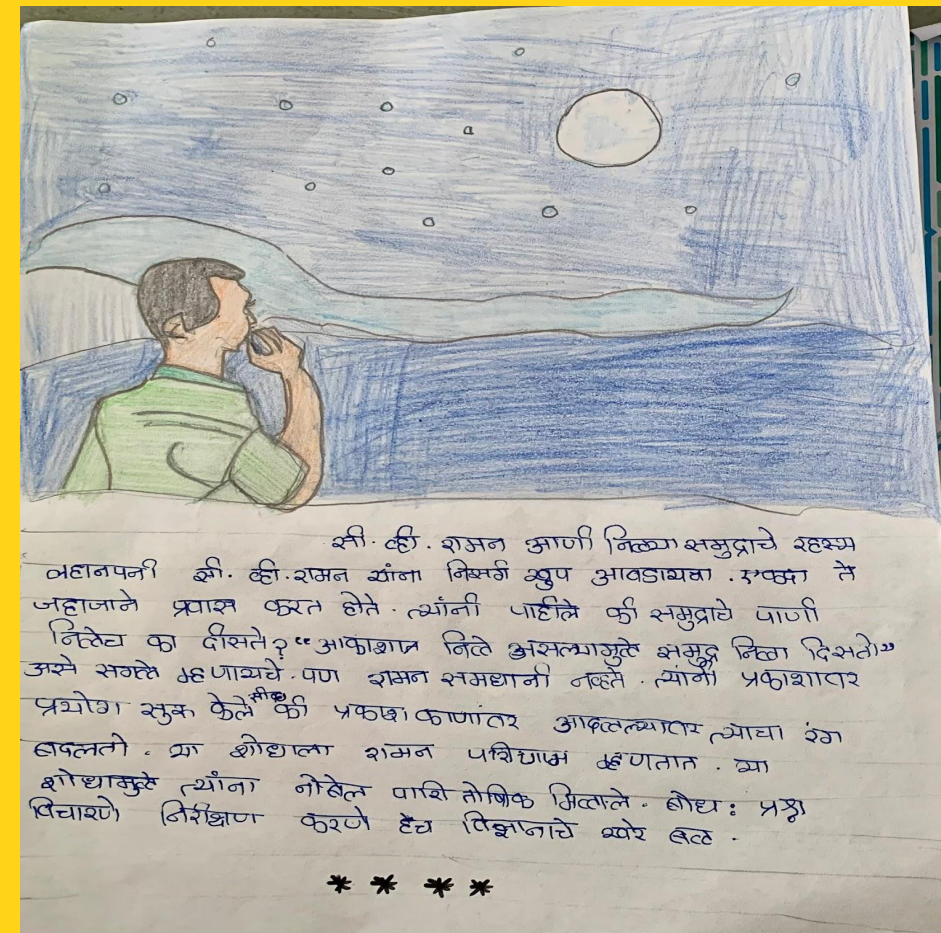 सी. व्ही. रामन आणी निळ्या समुद्राचे रहस्य
लहानपनी सी. व्ही. रामन यांना निसर्ग खुप आवडायचा. एकदा ते
जहाजाने प्रवास करत होते. त्यांनी पाहीले की समुद्राचे पाणी
निळेच का दीसते? "आकाशात निळे असल्यामुळे समुद्र निळा दिसतो"
असे सगळे म्हणायचे. पण रामन समधानी नव्हते. त्यांनी प्रकाशावर
प्रयोग सुरू केले की प्रकाश काणांवर आदळल्यावर त्याचा रंग
बदलतो. या शोधाला रामन परिणाम म्हणतात. या
शोधामुळे त्यांना नोबेल पारितोषिक मिळाले. बोध: प्रश्न
विचारणे निरीक्षण करणे हेच विज्ञानाचे खरे बळ.